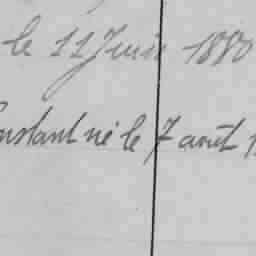 le 11 Juin 1880
onstant né le 7 août 1